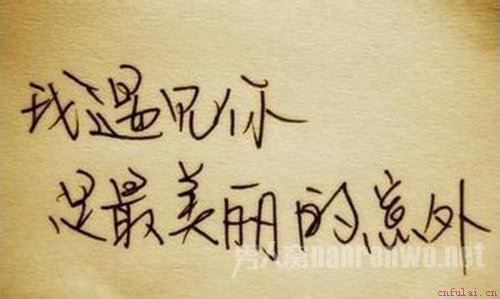 我遇见你
是最美丽的意外
男人窝nanrenwo.net
cnfulai.cn